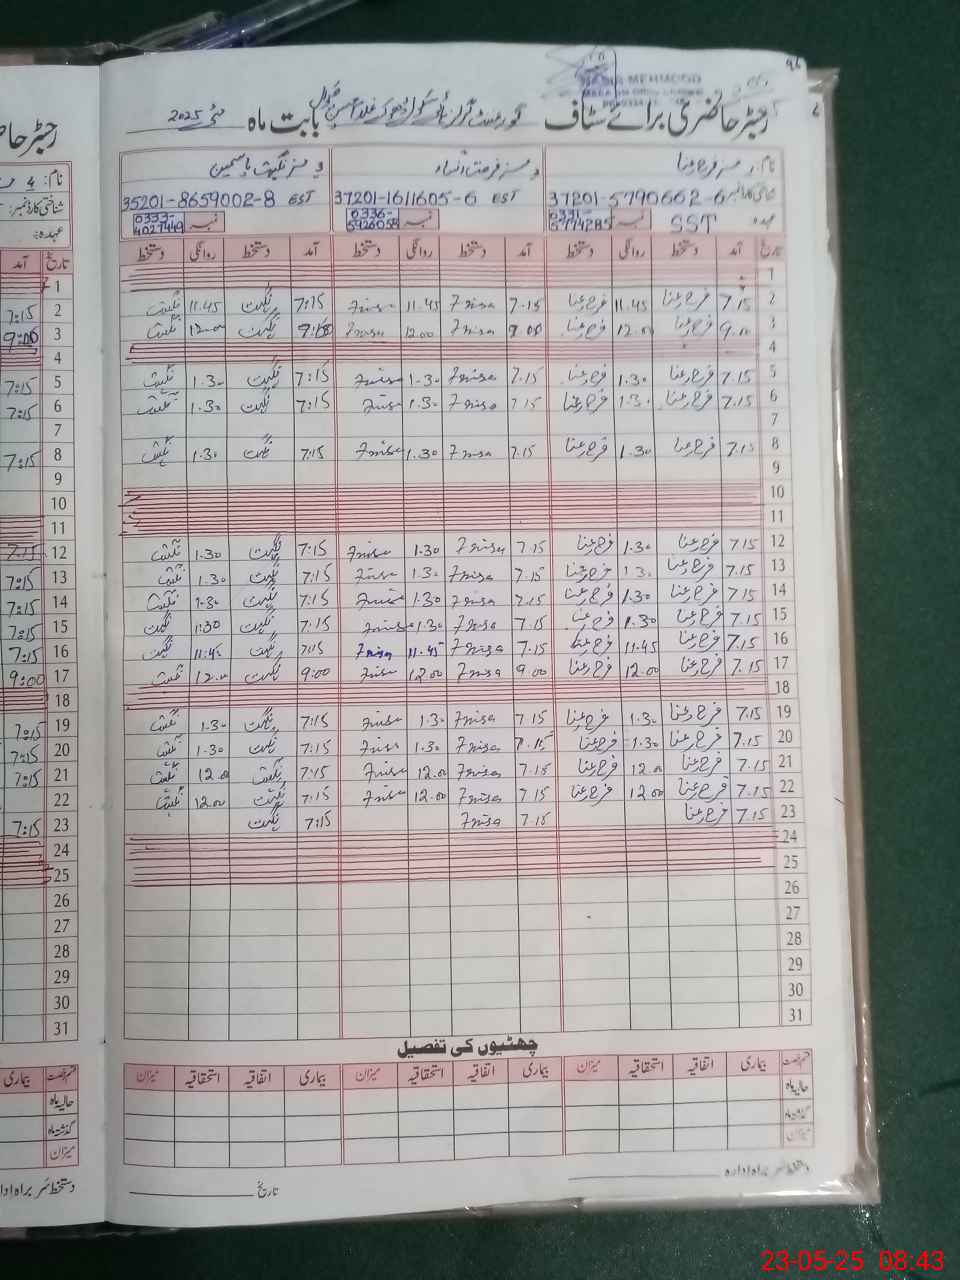 96
NASIR MEHMOOD
رجسٹر حاضری برائے سٹاف گورنمنٹ گرلز ہائی سکول بابت ماہ مئی 2025
نام: مسز فرح رعنا مسز فرحت النساء مسز نگہت یاسمین
شناختی کارڈ نمبر 37201-5790662-6 37201-1611605-6 EST 35201-8659002-8 EST
عہدہ SST نمبر 0331-5774285 نمبر 0336-5926058 نمبر 0333-4027449
تاریخ آمد دستخط روانگی دستخط آمد دستخط روانگی دستخط آمد دستخط روانگی دستخط
1
2 7.15 فرح رعنا 11.45 فرح رعنا 7.15 7nisa 11.45 7nisa 7:15 نگہت 11.45 نگہت
3 9.00 فرح رعنا 12.00 فرح رعنا 9.00 7nisa 12.00 7nisa 9:00 نگہت 12.00 نگہت
4
5 7.15 فرح رعنا 1.30 فرح رعنا 7.15 7nisa 1.30 7nisa 7:15 نگہت 1.30 نگہت
6 7.15 فرح رعنا 1.30 فرح رعنا 7.15 7nisa 1.30 7nisa 7:15 نگہت 1.30 نگہت
7
8 7.15 فرح رعنا 1.30 فرح رعنا 7.15 7nisa 1.30 7nisa 7:15 نگہت 1.30 نگہت
9
10
11
12 7.15 فرح رعنا 1.30 فرح رعنا 7.15 7nisa 1.30 7nisa 7:15 نگہت 1.30 نگہت
13 7.15 فرح رعنا 1.30 فرح رعنا 7.15 7nisa 1.30 7nisa 7:15 نگہت 1.30 نگہت
14 7.15 فرح رعنا 1.30 فرح رعنا 7.15 7nisa 1.30 7nisa 7:15 نگہت 1:30 نگہت
15 7.15 فرح رعنا 1.30 فرح رعنا 7.15 7nisa 1.30 7nisa 7:15 نگہت 1:30 نگہت
16 7.15 فرح رعنا 11.45 فرح رعنا 7.15 7nisa 11.45 7nisa 7:15 نگہت 11.45 نگہت
17 7.15 فرح رعنا 12.00 فرح رعنا 9.00 7nisa 12.00 7nisa 9:00 نگہت 12.00 نگہت
18
19 7.15 فرح رعنا 1.30 فرح رعنا 7.15 7nisa 1.30 7nisa 7:15 نگہت 1.30 نگہت
20 7.15 فرح رعنا 1.30 فرح رعنا 7.15 7nisa 1.30 7nisa 7:15 نگہت 1.30 نگہت
21 7.15 فرح رعنا 12.00 فرح رعنا 7.15 7nisa 12.00 7nisa 7:15 نگہت 12.00 نگہت
22 7.15 فرح رعنا 12.00 فرح رعنا 7.15 7nisa 12.00 7nisa 7:15 نگہت 12.00 نگہت
23 7.15 فرح رعنا 7.15 7nisa 7:15 نگہت
24
25
26
27
28
29
30
31
چھٹیوں کی تفصیل
قسم رخصت بیماری اتفاقیہ استحقاقیہ میزان بیماری اتفاقیہ استحقاقیہ میزان بیماری اتفاقیہ استحقاقیہ میزان
حالیہ ماہ
گذشتہ ماہ
میزان
دستخط سربراہ ادارہ تاریخ
رجسٹر حا
نام: 4
شناختی کارڈ نمبر:
عہدہ:
تاریخ آمد
1
2 7:15
3 9:00
4
5 7:15
6 7:15
7
8 7:15
9
10
11
12 7.15
13 7:15
14 7:15
15 7:15
16 7:15
17 9:00
18
19 7:15
20 7:15
21 7:15
22
23 7:15
24
25
26
27
28
29
30
31
قسم رخصت بیماری
حالیہ ماہ
گذشتہ ماہ
میزان
دستخط سربراہ ادا
23-05-25 08:43